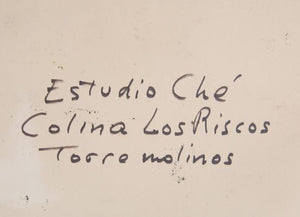 Estudio Ché
Colina Los Riscos
Torremolinos